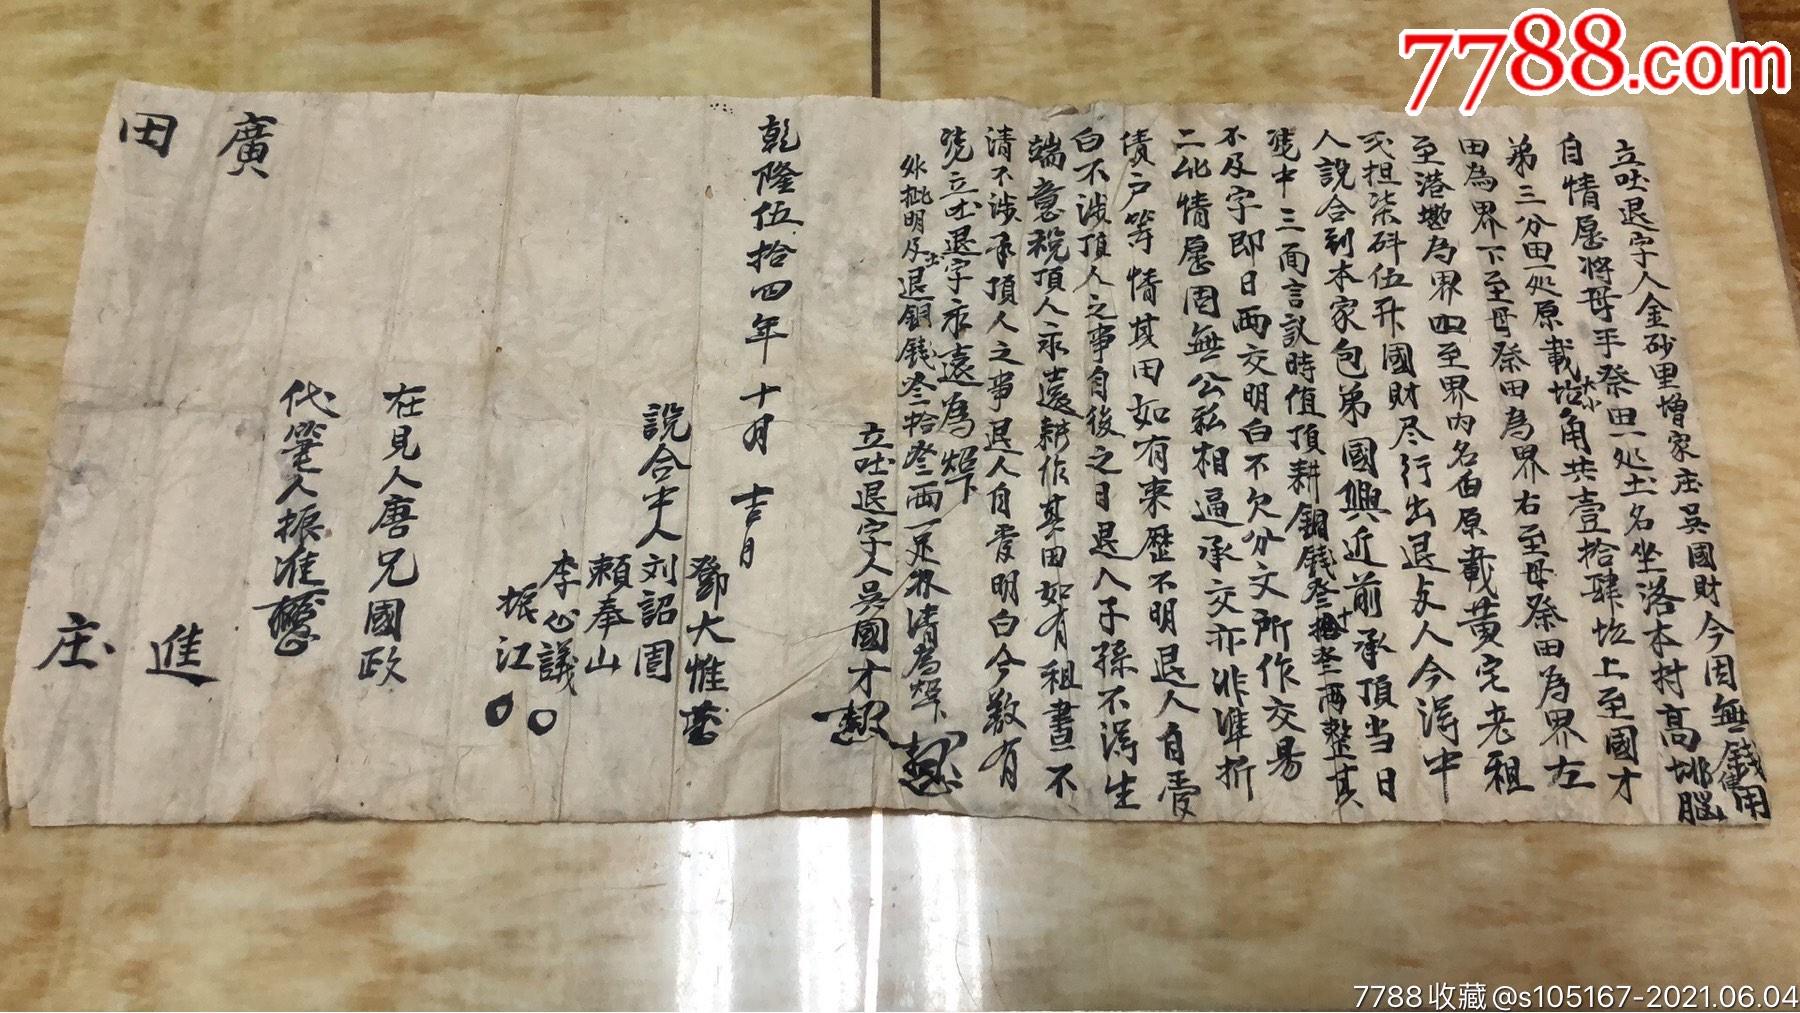 7788.com
立吐退字人金砂里增家庄吳國財今因無錢使用
自情愿將母手祭田一処土名坐落本村高排腦
弟三分田一処原載大小坵角共壹拾肆坵上至國才
田為界下至母祭田為界右至母祭田為界左
至港墈為界四至界内名面原載黃宅老租
弍担柒斗伍升國財尽行出退与人今淂中
人說合到本家包弟國興近前承頂當日
凴中三面言議時值頂耕銅錢叁十叁両整其
不及字即日両交明白不欠分文所作交易
二比情愿因無公私相逼承交亦非准折
債戶等情其田如有来歷不明退人自受
白不涉頂人之事自後之日退人子孫不淂生
端意税頂人永遠耕作其田如有租晝不
清不涉承頂人之事退人自受明白今欲有
凴立吐退字永遠為炤
外批明及土退銅錢叁拾叁両一足收清為炤
立吐退字人吳國才
乾隆伍拾四年十月吉日
說合中人
鄧大惟
刘詔周
賴奉山
李公議
振江
在見人唐兄國政
代筆人振淮
廣
田
進
庄
7788收藏@s105167-2021.06.04